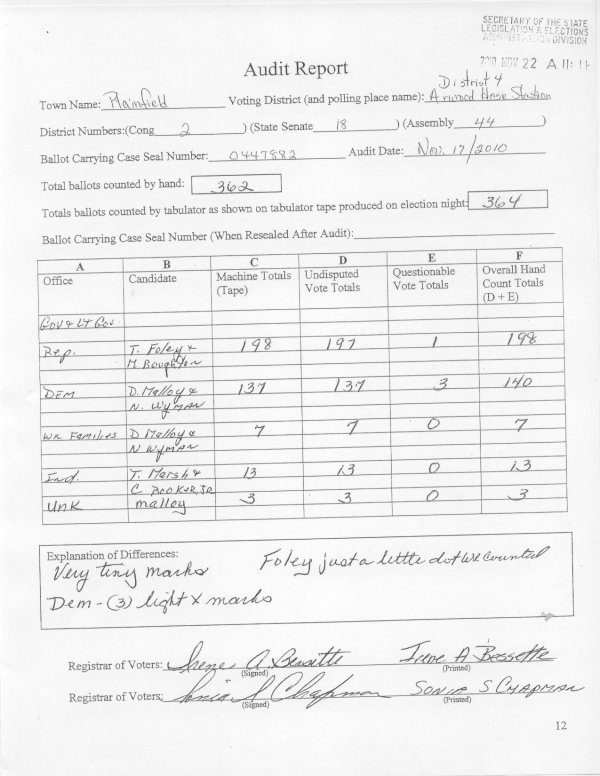 SECRETARY OF THE STATE
LEGISLATION & ELECTIONS
DIVISION
2010 NOV 22 A 11: 11
Audit Report
District 4
Town Name: Plainfield Voting District (and polling place name): Atwood Hose Station
District Numbers:(Cong 2 ) (State Senate 18 ) (Assembly 44 )
Ballot Carrying Case Seal Number: 0447882 Audit Date: Nov. 17/2010
Total ballots counted by hand: 362
Totals ballots counted by tabulator as shown on tabulator tape produced on election night: 364
Ballot Carrying Case Seal Number (When Resealed After Audit):
A B C D E F
Office Candidate Machine Totals (Tape) Undisputed Vote Totals Questionable Vote Totals Overall Hand Count Totals (D + E)
Gov & LT Gov
Rep. T. Foley & 198 197 1 198
M Boughton
DEM D. Malloy & 137 137 3 140
N. Wyman
WK Families D Malloy & 7 7 0 7
N Wyman
Ind. T. Marsh & 13 13 0 13
C BOOKER, JR
UNK malloy 3 3 0 3
Explanation of Differences:
Very tiny marks Foley just a little dot we counted
Dem - (3) light x marks
Registrar of Voters: Irene A. Bessette Irene A Bessette
(Signed) (Printed)
Registrar of Voters: Sonia S Chapman SONIA S CHAPMAN
(Signed) (Printed)
12